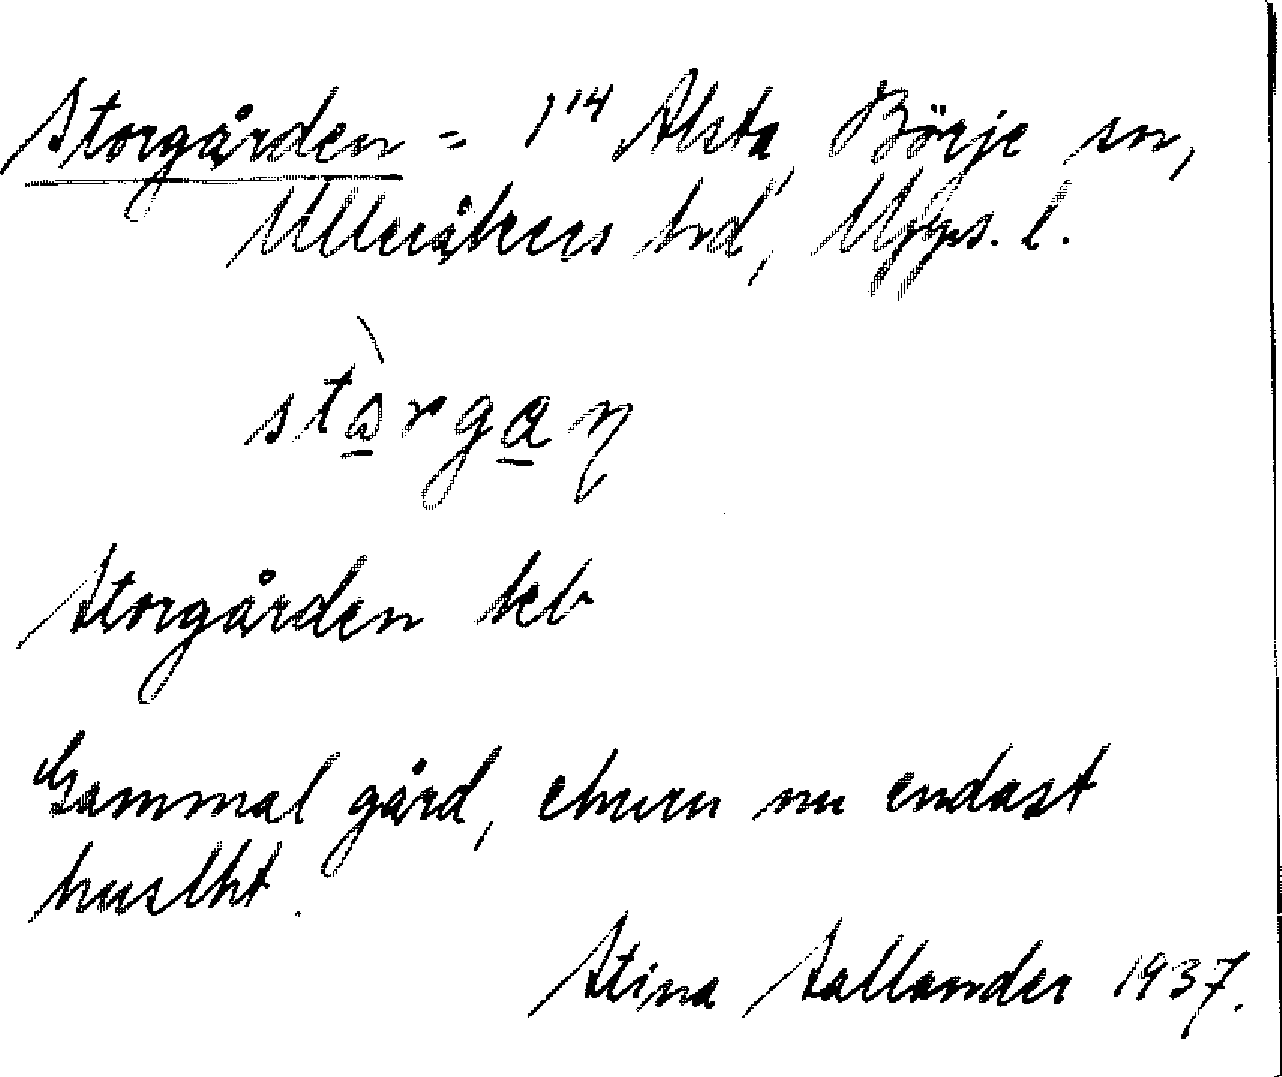 Storgården = 1¹⁴ Alsta, Börje sn,
Ulleråkers hrd, Upps. l.
stò̱rga̱ɳ
Storgården keb
Gammal gård, ehuru nu endast
huslht.
Stina Sallander 1937.